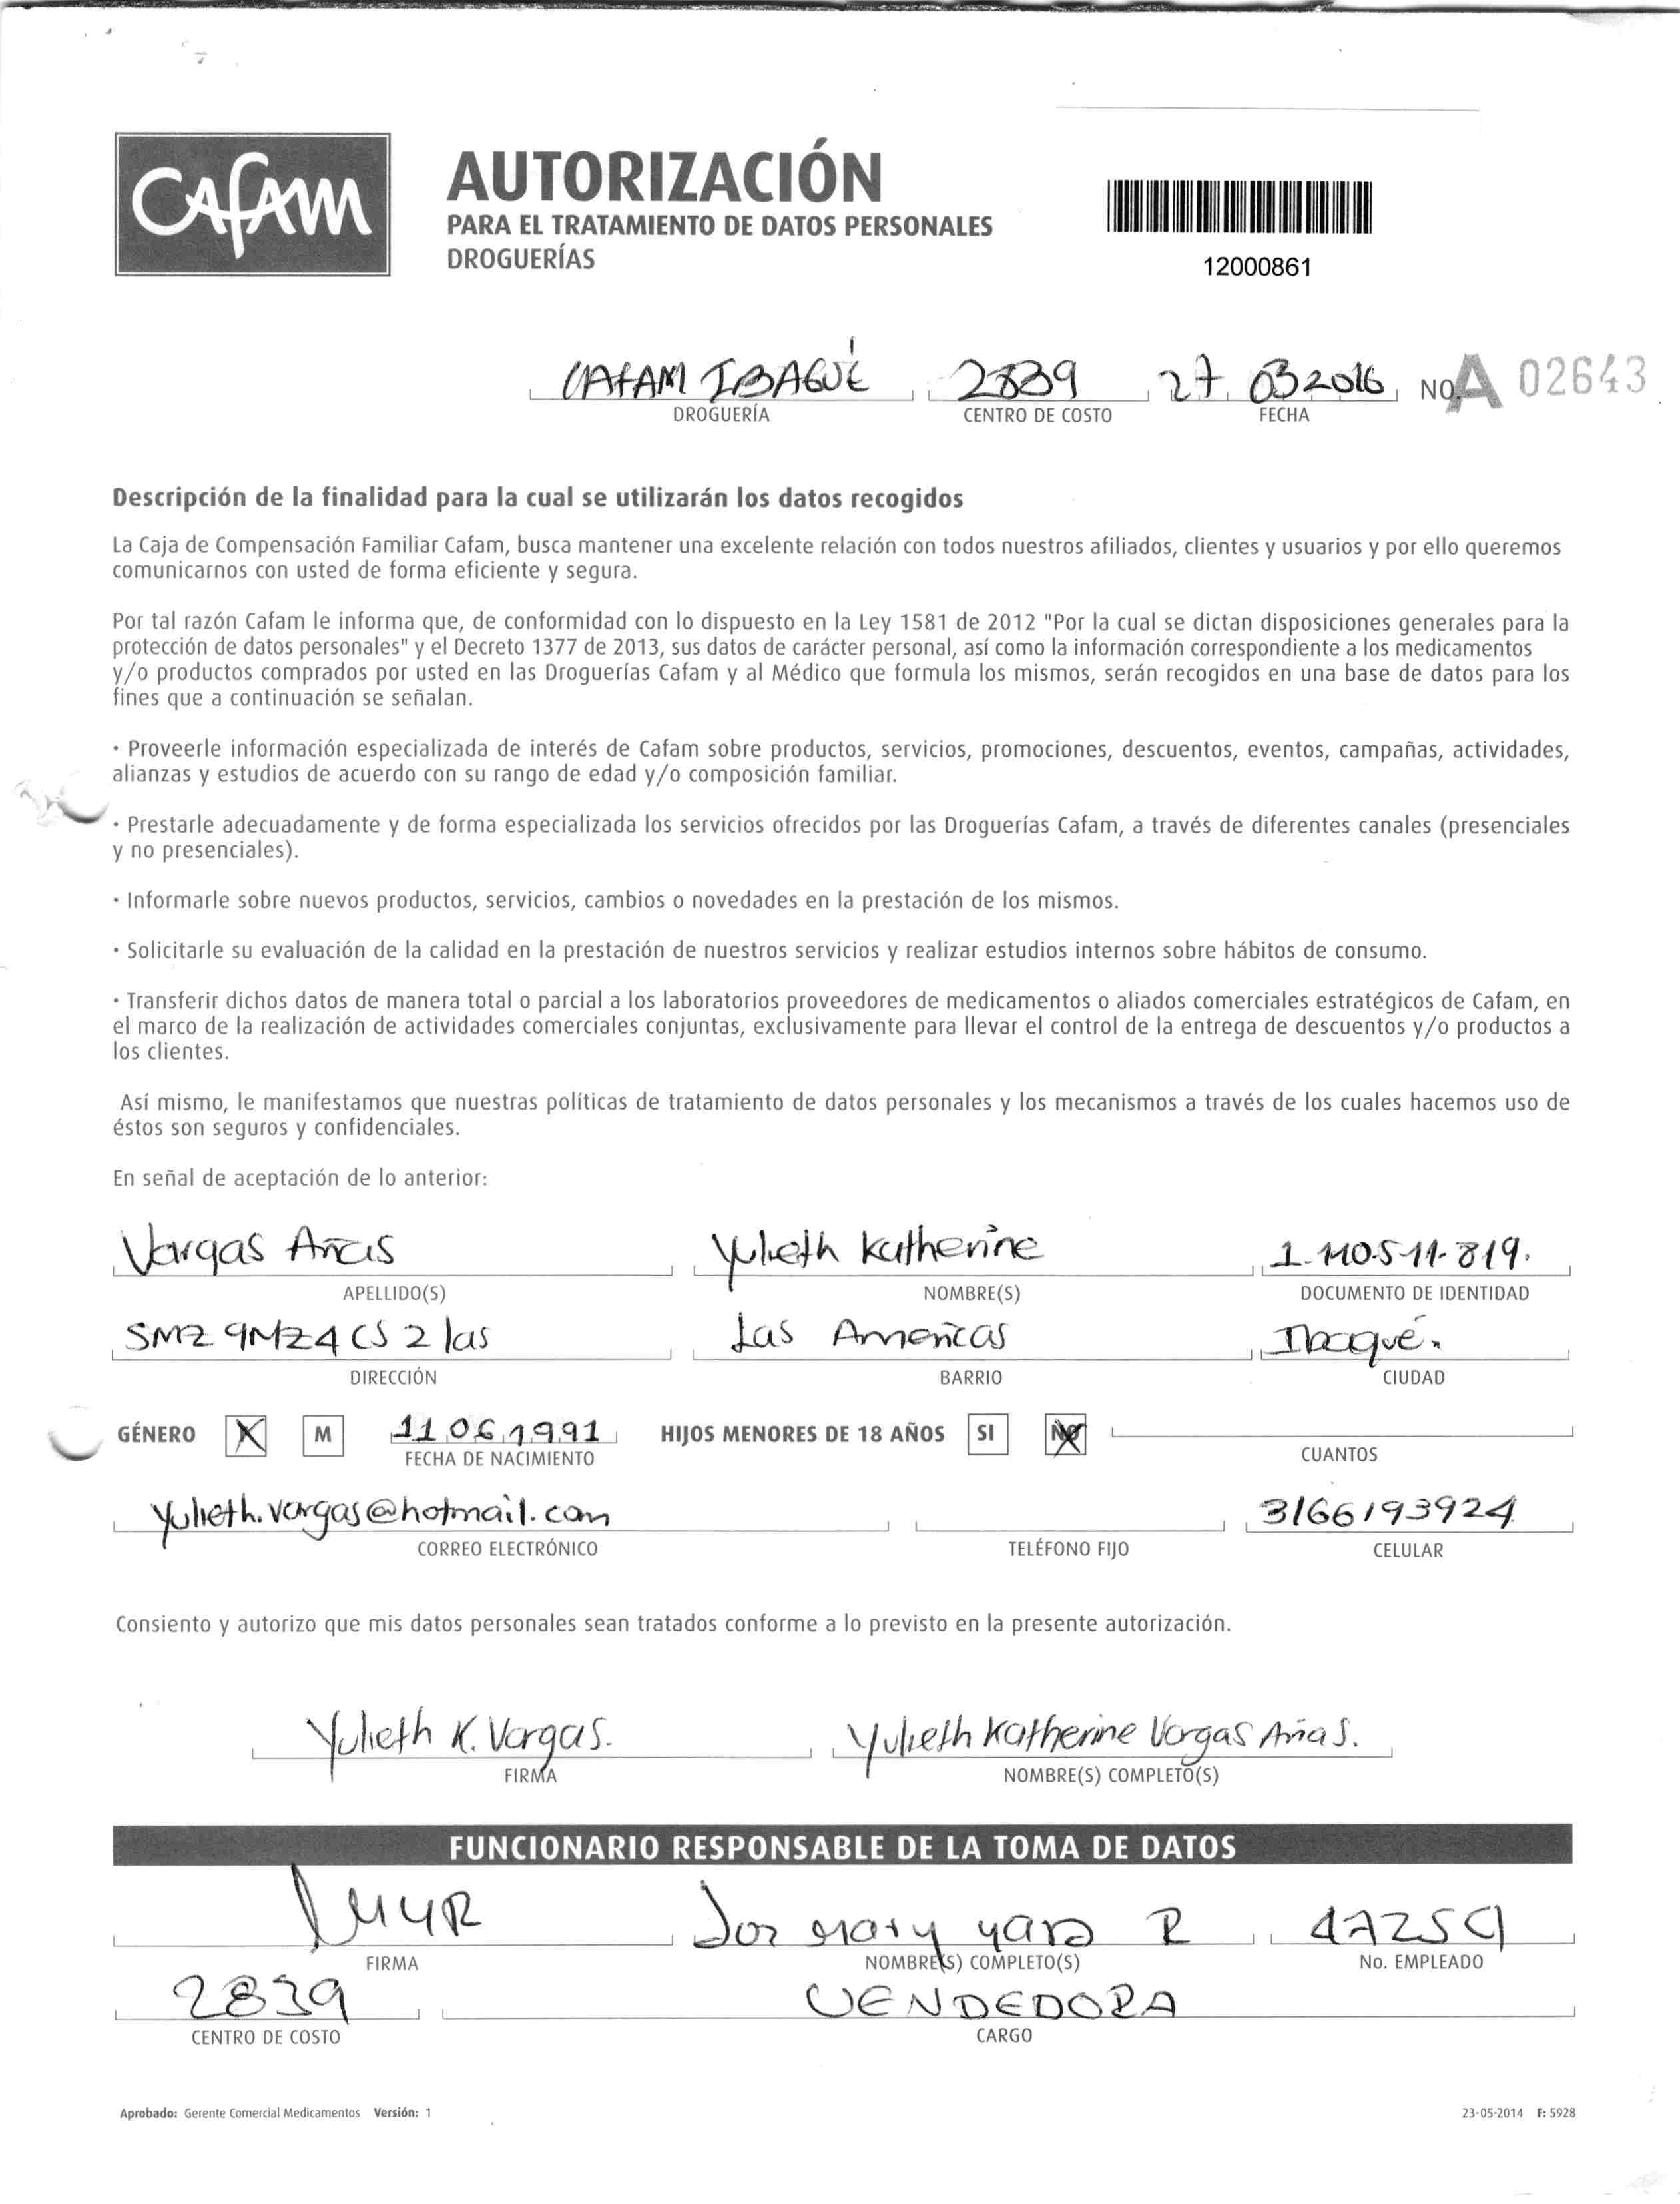 Cafam
AUTORIZACIÓN
PARA EL TRATAMIENTO DE DATOS PERSONALES
DROGUERÍAS
12000861
CAFAM IBAGUÉ 2839 27 03 2016 NO. A 02643
DROGUERÍA CENTRO DE COSTO FECHA
Descripción de la finalidad para la cual se utilizarán los datos recogidos
La Caja de Compensación Familiar Cafam, busca mantener una excelente relación con todos nuestros afiliados, clientes y usuarios y por ello queremos
comunicarnos con usted de forma eficiente y segura.
Por tal razón Cafam le informa que, de conformidad con lo dispuesto en la Ley 1581 de 2012 "Por la cual se dictan disposiciones generales para la
protección de datos personales" y el Decreto 1377 de 2013, sus datos de carácter personal, así como la información correspondiente a los medicamentos
y/o productos comprados por usted en las Droguerías Cafam y al Médico que formula los mismos, serán recogidos en una base de datos para los
fines que a continuación se señalan.
· Proveerle información especializada de interés de Cafam sobre productos, servicios, promociones, descuentos, eventos, campañas, actividades,
alianzas y estudios de acuerdo con su rango de edad y/o composición familiar.
· Prestarle adecuadamente y de forma especializada los servicios ofrecidos por las Droguerías Cafam, a través de diferentes canales (presenciales
y no presenciales).
· Informarle sobre nuevos productos, servicios, cambios o novedades en la prestación de los mismos.
· Solicitarle su evaluación de la calidad en la prestación de nuestros servicios y realizar estudios internos sobre hábitos de consumo.
· Transferir dichos datos de manera total o parcial a los laboratorios proveedores de medicamentos o aliados comerciales estratégicos de Cafam, en
el marco de la realización de actividades comerciales conjuntas, exclusivamente para llevar el control de la entrega de descuentos y/o productos a
los clientes.
Así mismo, le manifestamos que nuestras políticas de tratamiento de datos personales y los mecanismos a través de los cuales hacemos uso de
éstos son seguros y confidenciales.
En señal de aceptación de lo anterior:
Vargas Arias Yulieth Katherine 1.110.511.819.
APELLIDO(S) NOMBRE(S) DOCUMENTO DE IDENTIDAD
SMZ 9MZ4 CS 2 las Las Americas Ibagué.
DIRECCIÓN BARRIO CIUDAD
GÉNERO X M 11 06 1991 HIJOS MENORES DE 18 AÑOS SI NO
FECHA DE NACIMIENTO CUANTOS
Yulieth.vargas@hotmail.com 3166193924
CORREO ELECTRÓNICO TELÉFONO FIJO CELULAR
Consiento y autorizo que mis datos personales sean tratados conforme a lo previsto en la presente autorización.
Yulieth K. Vargas. Yulieth Katherine Vargas Arias.
FIRMA NOMBRE(S) COMPLETO(S)
FUNCIONARIO RESPONSABLE DE LA TOMA DE DATOS
LMYR Luz Mary yara R
FIRMA NOMBRE(S) COMPLETO(S) No. EMPLEADO
2839 VENDEDORA
CENTRO DE COSTO CARGO
Aprobado: Gerente Comercial Medicamentos Versión: 1 23-05-2014 F: 5928